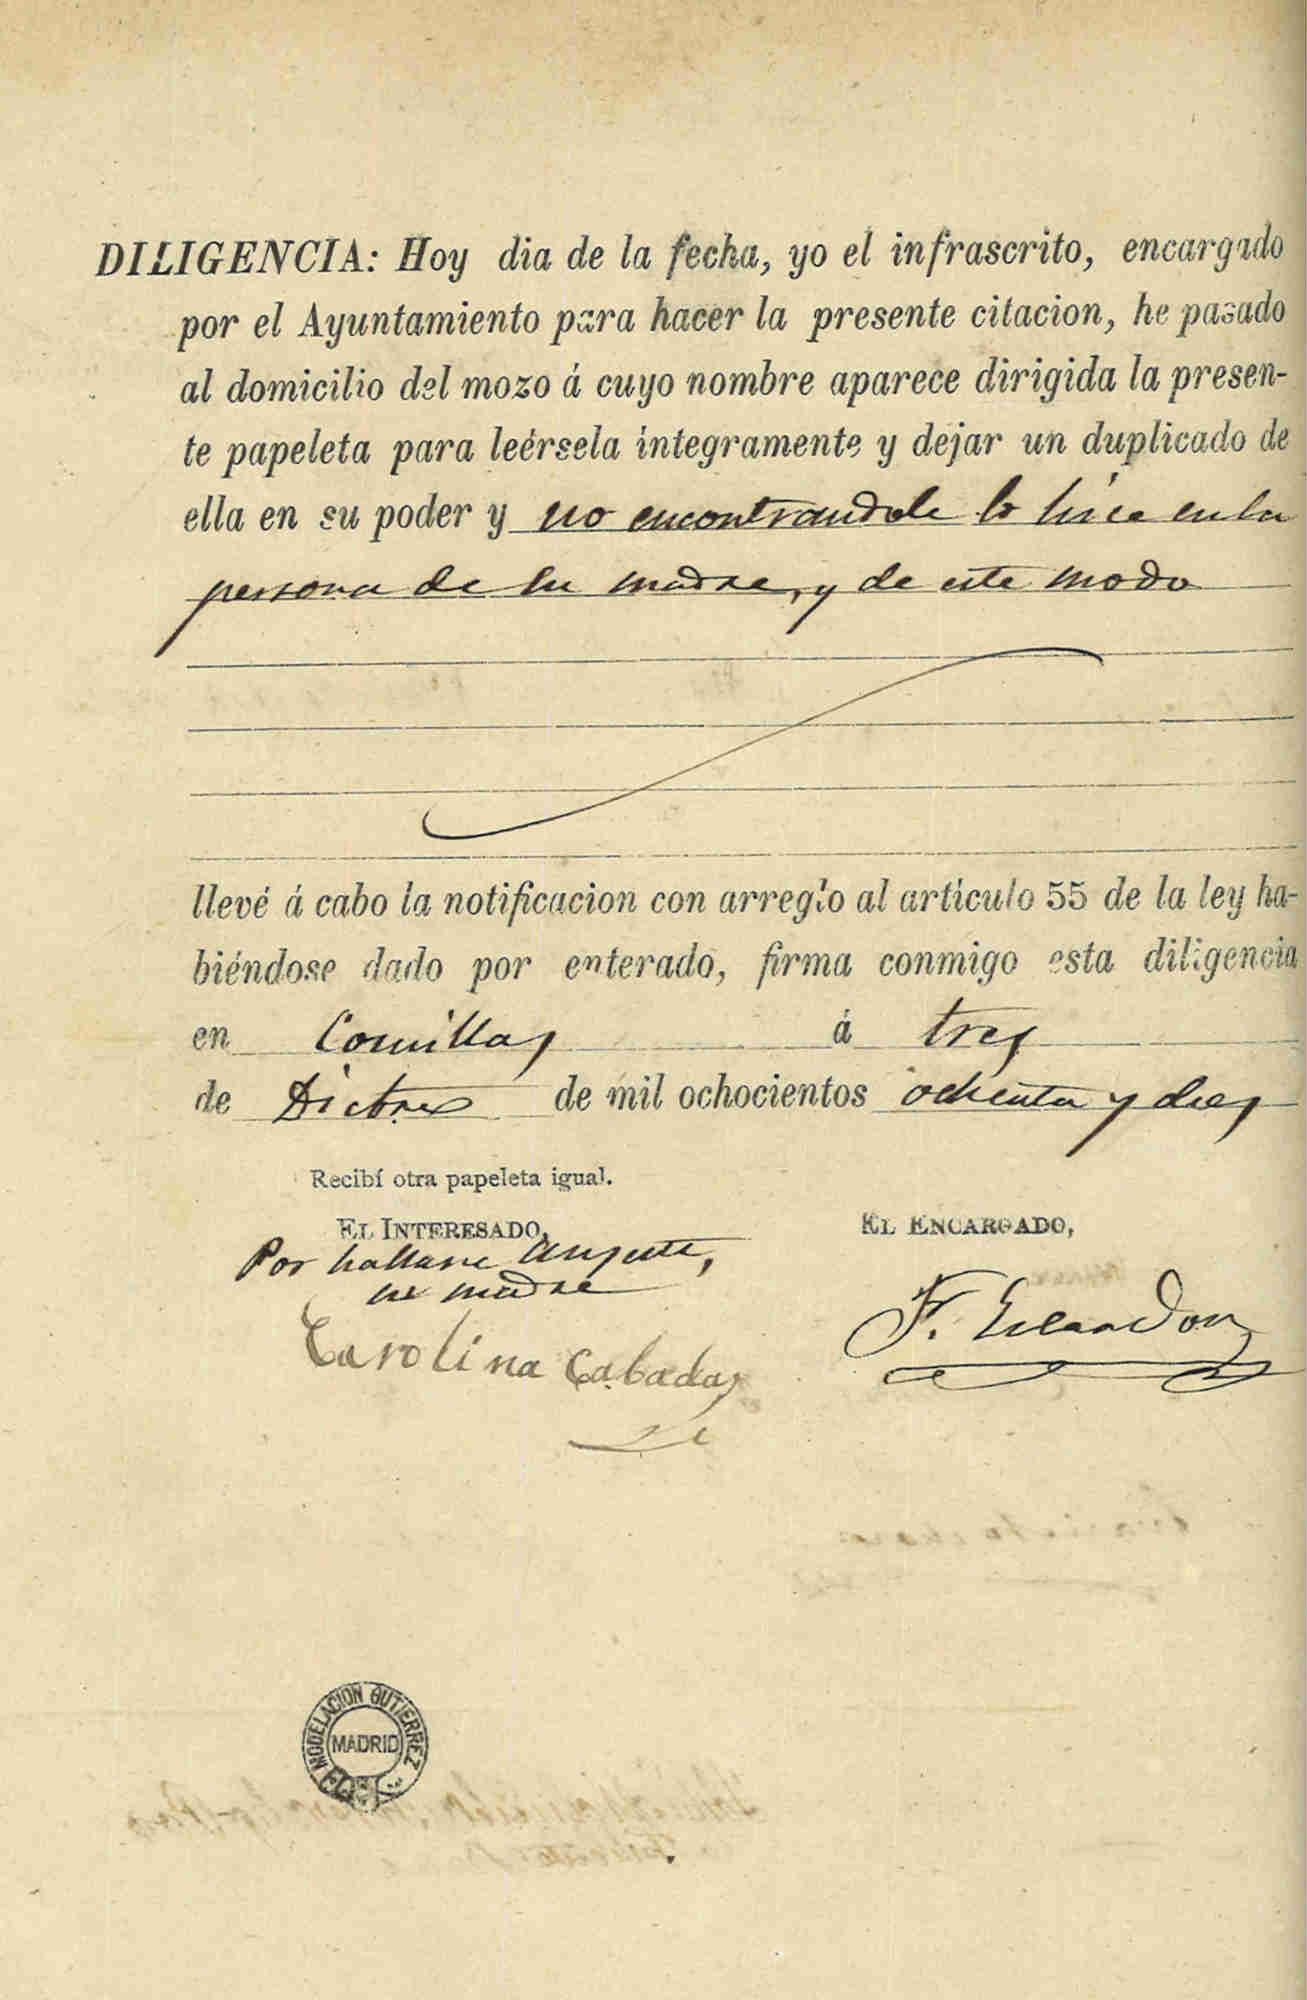 DILIGENCIA: Hoy dia de la fecha, yo el infrascrito, encargado
por el Ayuntamiento para hacer la presente citacion, he pasado
al domicilio del mozo á cuyo nombre aparece dirigida la presen-
te papeleta para leérsela íntegramente y dejar un duplicado de
ella en su poder y no encontrandole lo hice en la
persona de su madre, y de este modo
llevé á cabo la notificacion con arreglo al artículo 55 de la ley ha-
biéndose dado por enterado, firma conmigo esta diligencia
en Comillas á tres
de Dicbre de mil ochocientos ochenta y dos
Recibí otra papeleta igual.
EL INTERESADO, EL ENCARGADO,
Por hallarse Ausente,
su madre
Carolina Cabadas
F. Escandon
MODELACION GUTIERREZ
MADRID